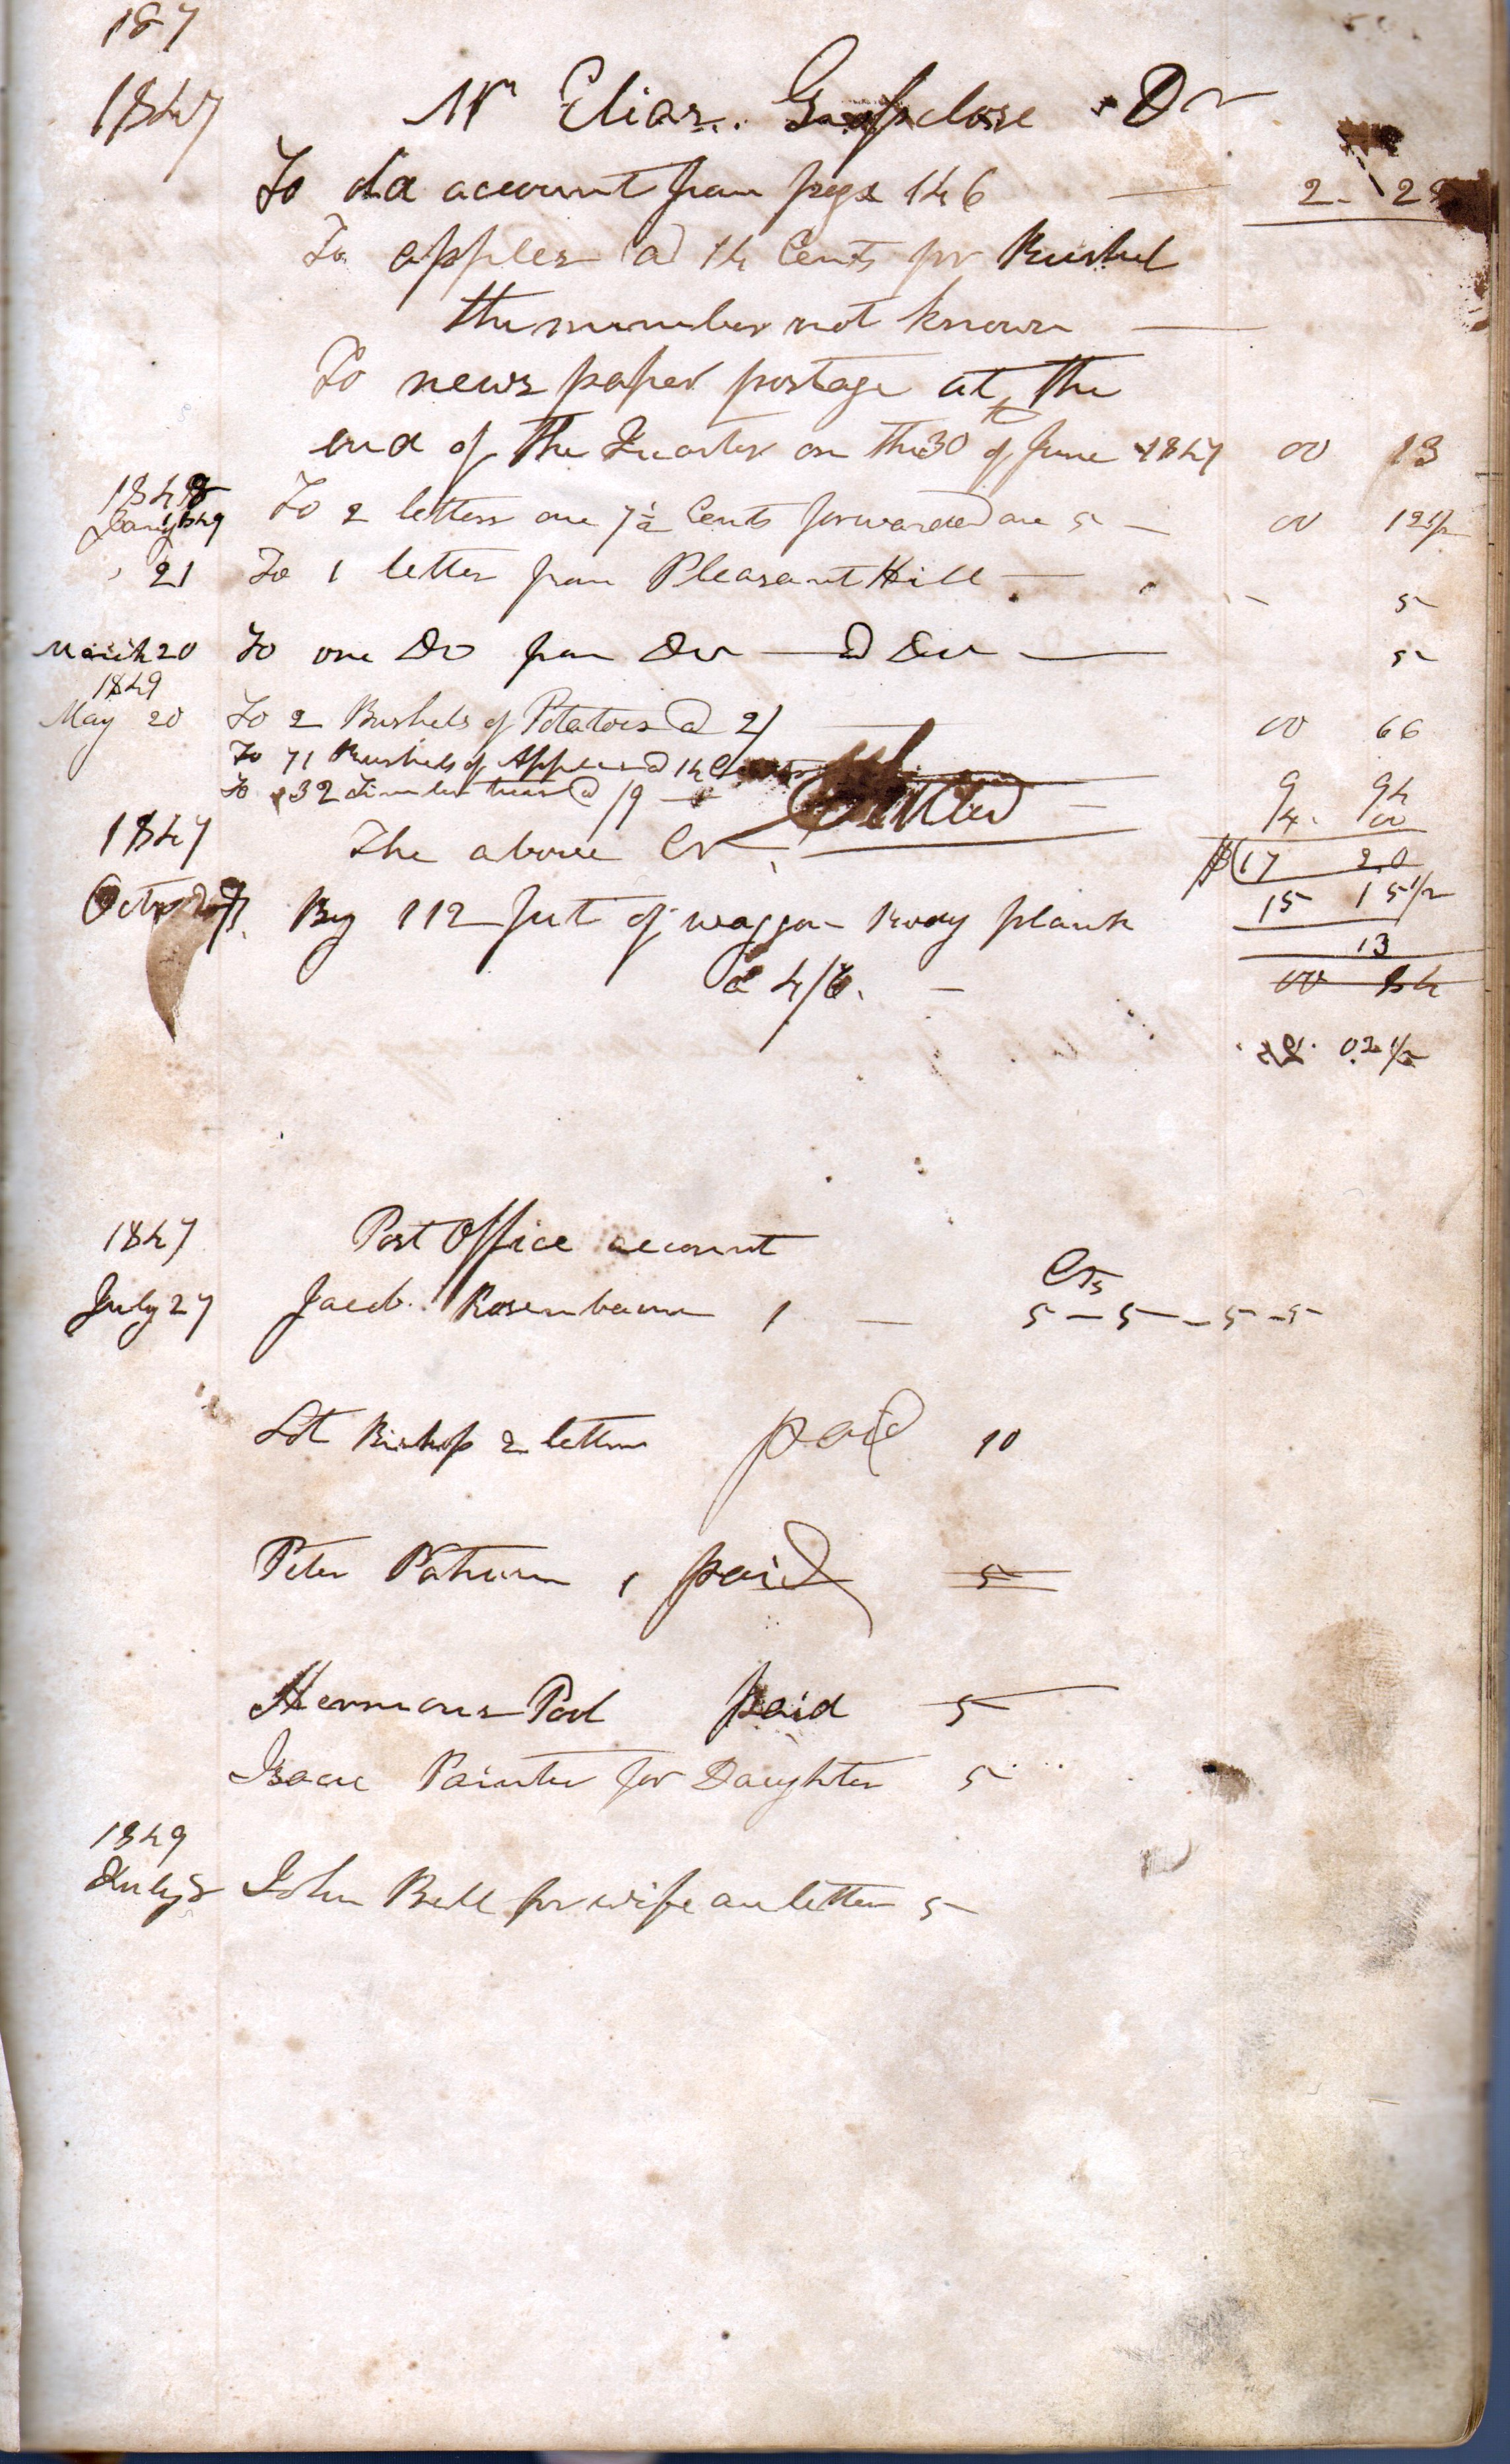 187
1847 Mr Elias Dr
To account from page 146 — 2. 28
To apples @ 14 Cents pr Bushel
the number not known —
To news paper postage at the
end of the Quarter on the 30th of June 1847 00 13
1848
Jany 1849 To 2 letters one 7½ Cents forwarded one 5 — 00 12½
21 To 1 letter from Pleasant Hill — 5
March 20 To one Do from Do — @ Do — 5
1849
May 20 To 2 Bushels of Potatoes @ 2/ 00 66
To 71 Bushels of Apples @ 14 9 94
To 32 Timber trees @ /9 — 4. 00
1847 The above Cr Settled $17 20
15 15½
Octr By 112 feet of waggon Body plank
13
@ 4/6. — 00 84
02½
1847 Post Office account
Cts
July 27 Jacob Rosenbaum 1 — 5 – 5 – 5 – 5
Lot Bishop 2 letters paid 10
Peter 1 paid 5
Hermans Pool paid 5
Isaac Painter for Daughter 5
1849
July 8 John Bell for wife one letter 5